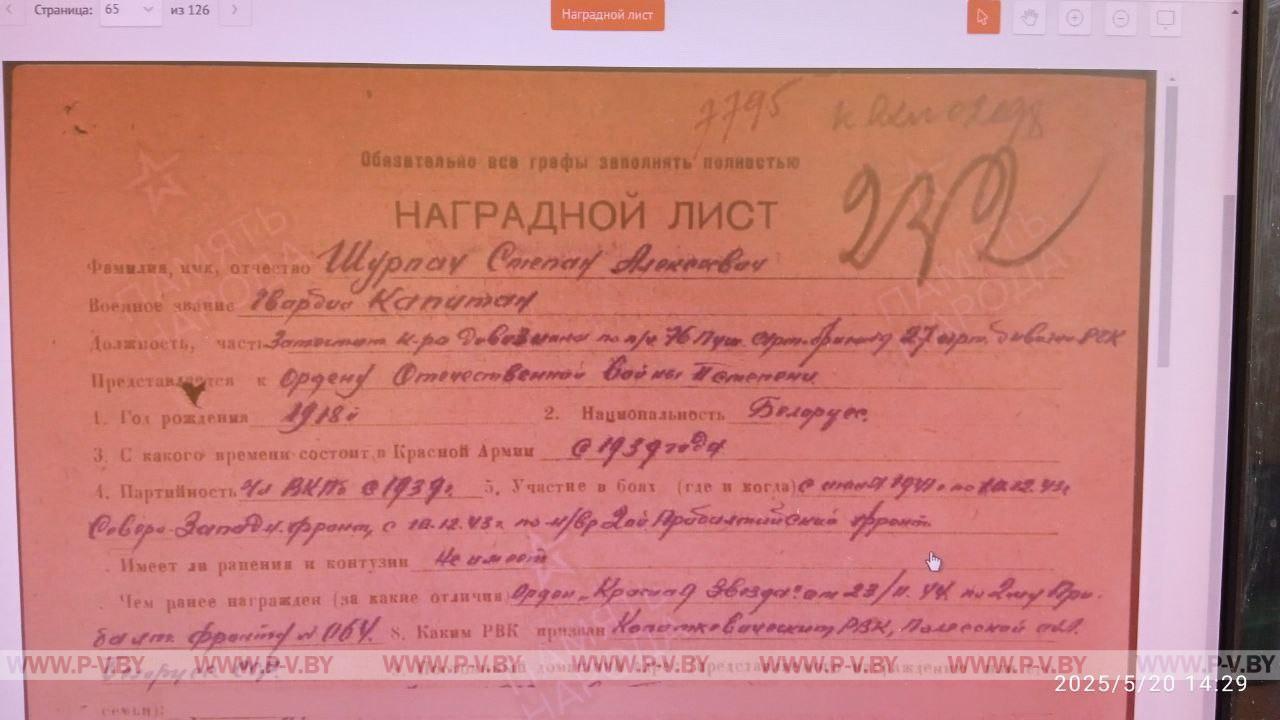 Страница: 65 из 126
Наградной лист
7795
232
Обязательно все графы заполнять полностью
НАГРАДНОЙ ЛИСТ
Фамилия, имя, отчество Шурпач Степан Алексеевич
Военное звание Гвардии Капитан
Должность, часть Заместит. к-ра дивизиона по п/ч 76 Пуш. Арт. бригады 27 арт. дивизии РГК
Представляется к Ордену Отечественной Войны II степени
1. Год рождения 1918 г. 2. Национальность Белорус.
3. С какого времени состоит в Красной Армии С 1939 года
4. Партийность Чл ВКПб с 1939 г. 5. Участие в боях (где и когда) с июля 1941 г. по 10.12.43 г.
Северо-Западн. фронт, с 10.12.43 г. по н/вр 2ой Прибалтийский фронт.
Имеет ли ранения и контузии Не имеет
Чем ранее награжден (за какие отличия) Орден „Красная Звезда" от 23/II.44. по 2му При-
балт. фронту № 064. 8. Каким РВК призван Копаткевическим РВК, Полесской обл.
Белорусс. ССР.
семьи):
WWW.P-V.BY WWW.P-V.BY WWW.P-V.BY WWW.P-V.BY WWW.P-V.BY WWW.P-V.BY WWW.P-V.BY
2025/5/20 14:29
ПАМЯТЬ НАРОДА
ПАМЯТЬ НАРОДА